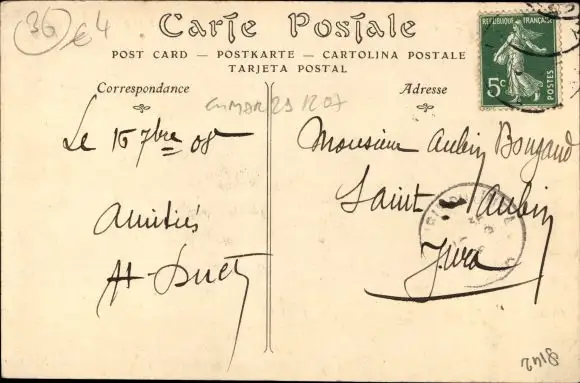 36
€4
Carte Postale
POST CARD — POSTKARTE — CARTOLINA POSTALE
TARJETA POSTAL
RÉPUBLIQUE FRANÇAISE
5c
POSTES
Correspondance
Adresse
Le 16 7bre 08
Amitiés
Monsieur Aubin Bougaud
Saint Aubin
Jura
8142